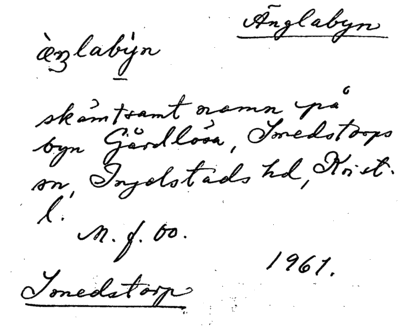 Änglabyn
æ̀ŋlabỳn
skämtsamt namn på
byn Gårdlösa, Smedstorps
sn, Ingelstads hd, Krist.
l.
M. f. oo.
1961.
Smedstorp